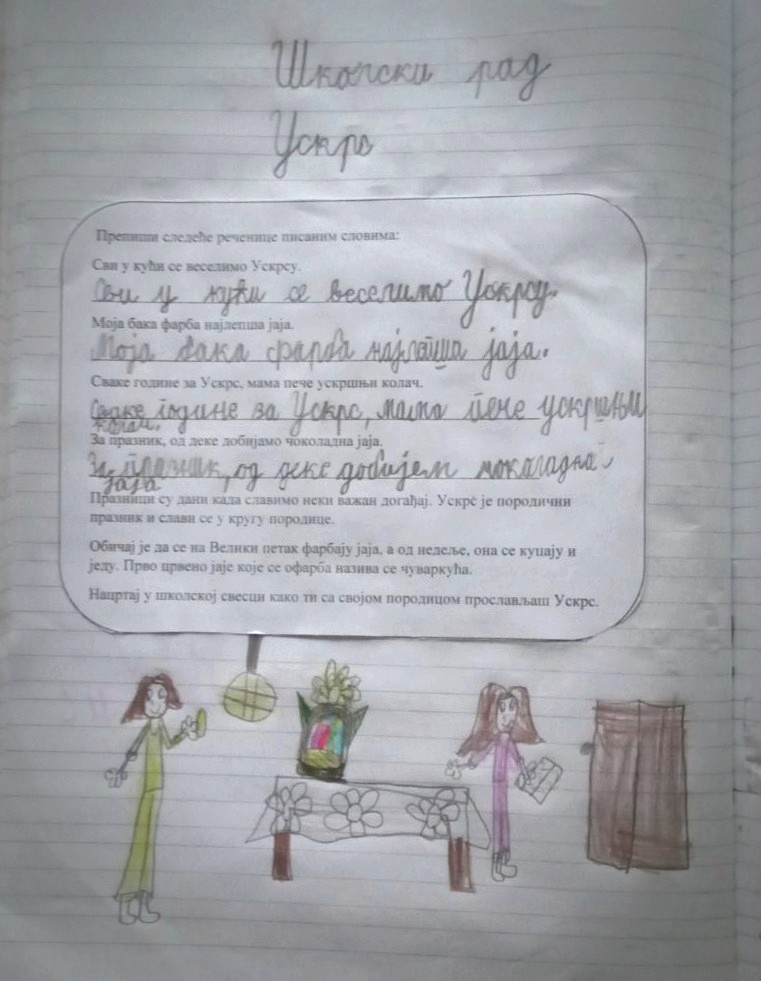 Школски рад
Ускрс
Препиши следеће реченице писаним словима:
Сви у кући се веселимо Ускрсу.
Сви у кући се веселимо Ускрсу.
Моја бака фарба најлепша јаја.
Моја бака фарба најлепша јаја.
Сваке године за Ускрс, мама пече ускршњи колач.
Сваке године за Ускрс, мама пече ускршњи
колач.
За празник, од деке добијамо чоколадна јаја.
За празник, од деке добијем чокагадна
јаја
Празници су дани када славимо неки важан догађај. Ускрс је породични
празник и слави се у кругу породице.
Обичај је да се на Велики петак фарбају јаја, а од недеље, она се куцају и
једу. Прво црвено јаје које се офарба назива се чуваркућа.
Нацртај у школској свесци како ти са својом породицом прослављаш Ускрс.